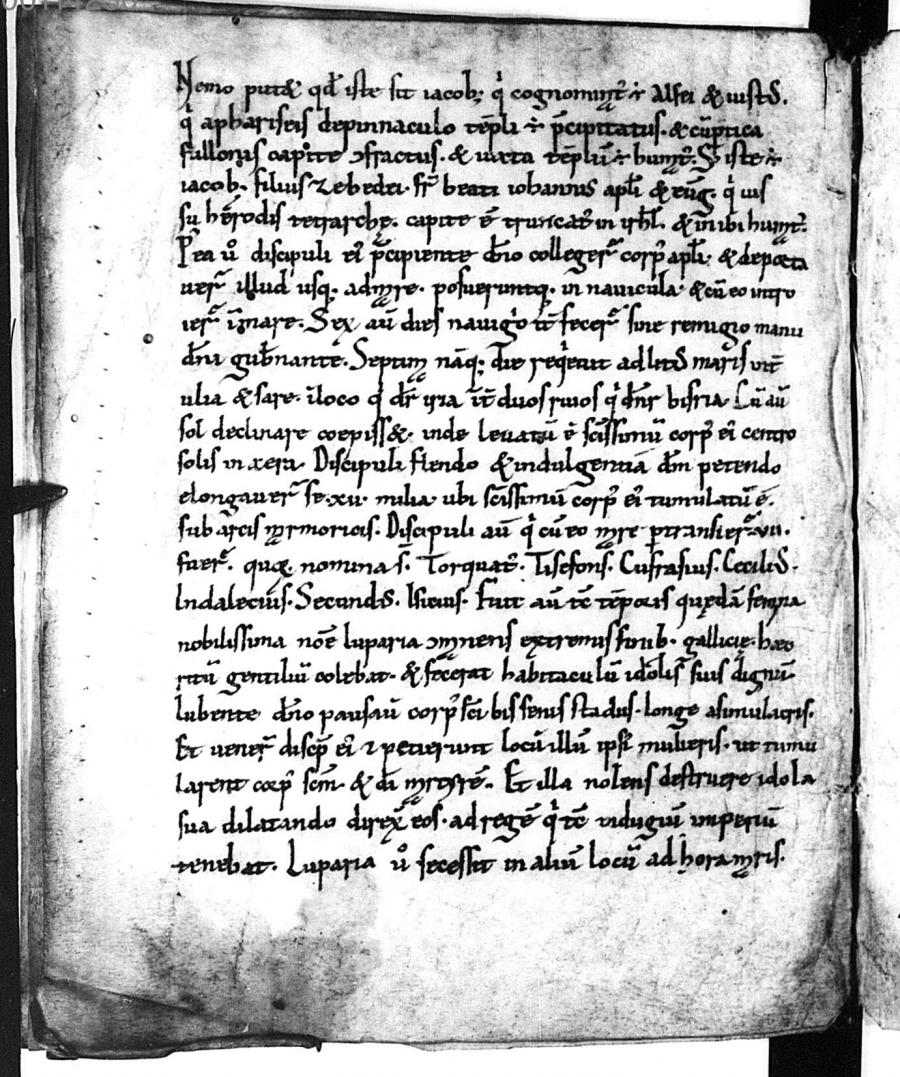 Nemo putet qđ iste sit iacob; q̇ cognominat᷒ ÷ Alfei & iustus.
q̇ aphariseis depinnaculo tēpli ÷ p̄cipitatus. & cū ptica
fullonis capite ɔfractus. & iuxta tēplū ÷ humat᷒. S; iste ÷
iacob. filius zebedei. fr̄ beati iohannis apli & euḡ. q̇ ius
su herodis tetrarchę. capite ē truncat᷒ in irhl̄. & in ibi humat᷒.
P̄ea u̇ discipuli ei᷒ p̄cipiente dn̄o colleger̄ corp᷒ apli. & deporta
uer̄ illud usq; ad mare. posueruntq; in nauicula. & cū eo intro
ier̄ ī mare. Sex aū dies nauigio tē fecer̄ sine remigio manu
dn̄i gub̄nante. Septima nāq; die reqeuit ad litus maris int̄
ulia & sare. ī loco q̇ dr̄ iria īt duos riuos q̇ dn̄r bisria. Cū aū
sol declinare coepiss&. inde leuatū ē sc̄issimū corp᷒ ei᷒ centro
solis in aera. Discipuli flendo & indulgentiā dm̄ petendo
elongauer̄ se. xii. milia. ubi sc̄issimū corp᷒ ei᷒ tumulatū ē.
sub arcis marmoricis. Discipuli aū q̇ cū eo mare p̱transier̄ .vii.
fuer̄. quo nomina s̄. Torquat᷒. Tisefons. Eufrasius. Cecilius.
Indalecius. Secundus. Isicius. Fuit aū tē tēporis quędā femina
nobilissima noēe luparia ɔmanens extremis finib. gallicie. hæc
ritū gentiliū colebat. & fecerat habitaculū idolis suis dignū.
lubente dn̄o pausaū corp᷒ sc̄i bis senis stadiis. longe asimulacris.
Et uener̄ discip̄ ei᷒ ⁊ petierunt locū illū ipsi᷒ mulieris. ut tumu
larent corp᷒ scm̄. & dī martyrē. Et illa nolens destruere idola
sua dilatando direx̄ eos. ad regē q̇ tē indugiū imperiū
tenebat. Luparia u̇ secessit in aliū locū ad hora maris.